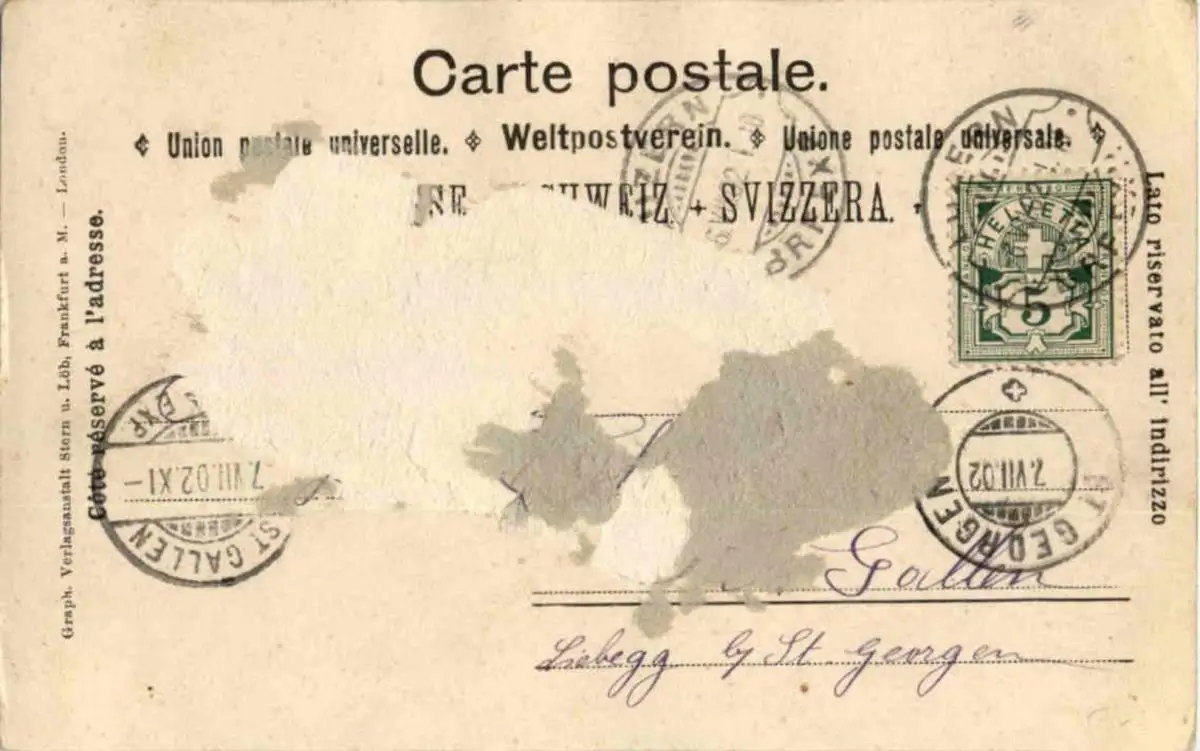 Carte postale.
Union postale universelle. Weltpostverein. Unione postale universale.
SE SCHWEIZ + SVIZZERA.
HELVETIA
5
Graph. Verlagsanstalt Stern u. Löb, Frankfurt a. M. — London.
Côté réservé à l'adresse.
Lato riservato all' indirizzo
LUZERN
LUZERN
7.VII.02.XI–
ST GALLEN
7.VII.02
ST GEORGEN
Gallen
Liebegg b/ St. Georgen